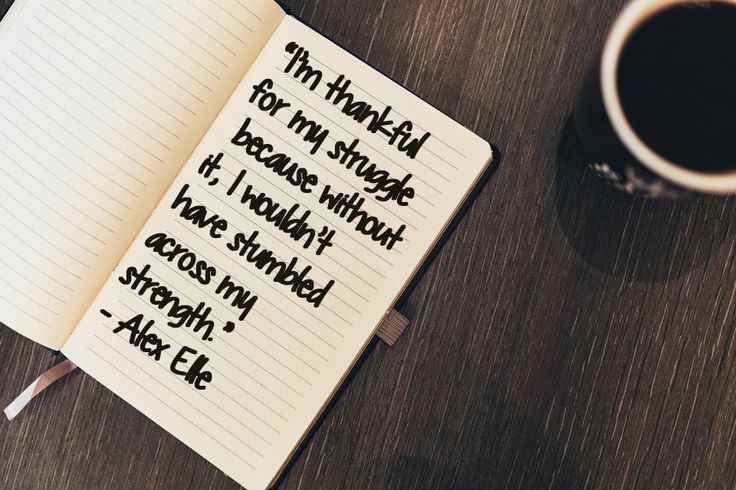 "I'm thankful
for my struggle
because without
it, I wouldn't
have stumbled
across my
strength."
- Alex Elle